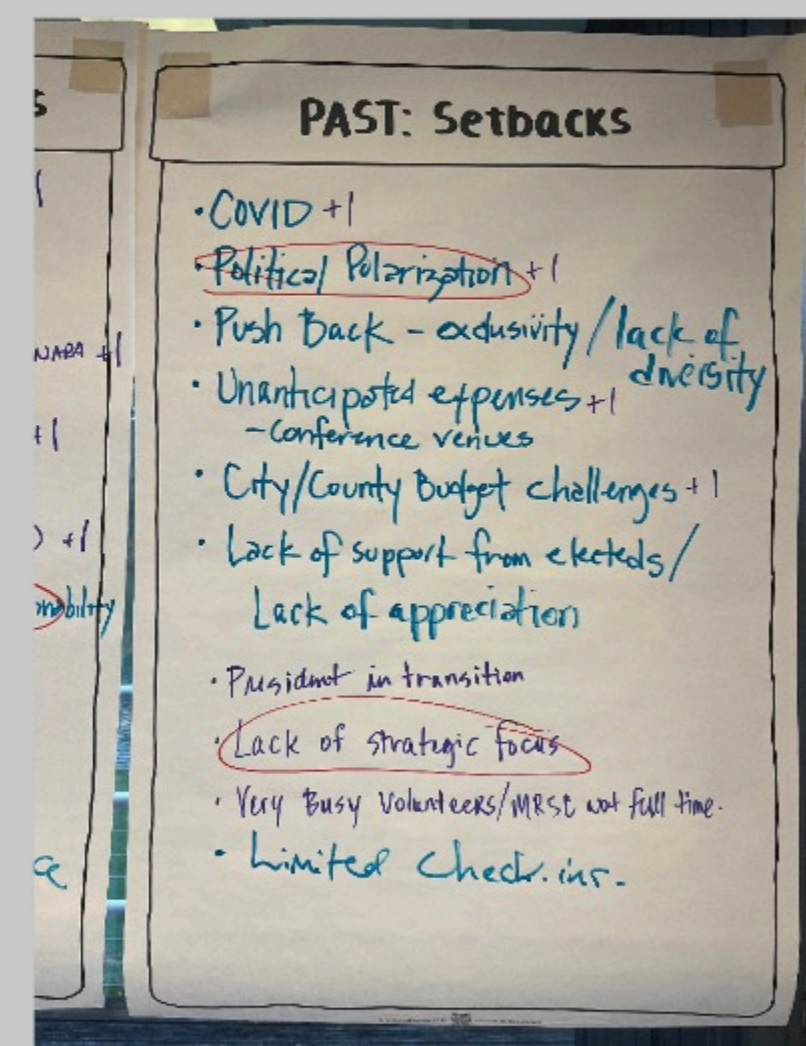 PAST: Setbacks
• COVID +1
• Political Polarization +1
• Push Back - exclusivity / lack of
diversity
• Unanticipated expenses +1
- conference venues
• City/County Budget challenges +1
• Lack of support from electeds /
Lack of appreciation
• President in transition
• Lack of strategic focus
• Very Busy Volunteers/MRSC not full time.
• Limited Check.ins.
S
NABA +1
+1
) +1
bility